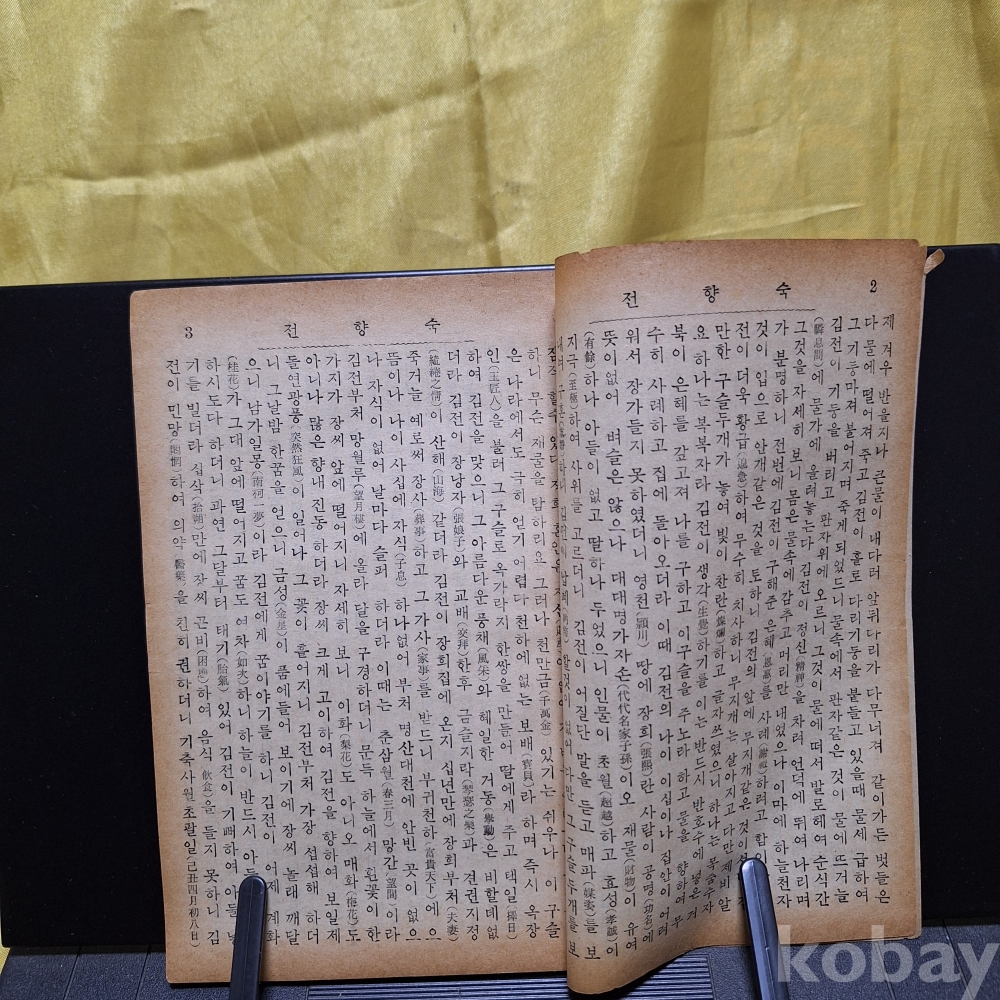 2 숙향전
제 겨우 반을지나 큰물이 내다러 앞뒤다리가 다무너져 같이가든 벗들은
다 물에 떨어져 죽고 김전이 홀로 다리기둥을 붙들고 있을때 물세 급하여
그 기둥마져 불어지며 죽게되었드니 물속에서 판자같은것이 물에 뜨거늘
김전이 기둥을 버리고 판자위에 오르니 그것이 물에 떠서 발로헤여 순식간
(瞬息間)에 물가에 올려놓는다 김전이 정신(精神)을 차려 언덕에 뛰여 나리며
그것을 자세히 보니 몸은 물속에 감추고 머리만 내었으나 이마에 하늘천자
가 분명하니 전번에 김전이 구해준 은혜(恩惠)를 사례(謝禮)하려고 합이
것이 입으로 안개같은 것을 토하니 김전의 앞에 무지개같은 것이
전이 더욱 황급(遑急)하여 무수히 치사하니 무지개는 살아지고 다만 제비알
만한 구슬두개가 놓여 빛이 찬란(燦爛)하고 글자쓰였으니 하나는 목숨수자
요 하나는 복복자라 김전이 생각(生覺)하기를 이는 반드시 반호수에 놓은 거
북이 은혜를 갚고져 나를 구하고 이구슬을 주노라 하고 물을 향하여 무
수히 사례하고 집에 돌아오더라 이때 김전의 나이 이십이나 집안이 어려
워서 장가들지 못하였더니 영천(潁川) 땅에 장희(張熙)란 사람이 공명(功名)에
뜻이없어 벼슬은 않으나 대대명가자손(代代名家子孫)이오 재물(財物)이 유여
(有餘)하나 아들이 없고 딸하나 두었으니 인물이 초월(超越)하고 효성(孝誠)이
지극(至極)하여 사위를 고르더니 김전이 어질단 말을 듣고 매파(媒婆)를 보
3 숙향전
하니 무슨 재물을 탐하리요 그러나 천만금(千萬金) 있기는 쉬우나 이 구슬
은 나라에서도 극히 얻기 어렵다 천하에 없는 보배(寶貝)라 하며 즉시 옥장
인(玉匠人)을 불러 그 구슬로 옥가락지 한쌍을 만들어 딸에게 주고 택일(擇日)
하여 김전을 맞으니 그 아름다운 풍채(風采)와 헤일한 거동(擧動)은 비할데없
더라 김전이 장낭자(張娘子)와 교배(交拜)한후 금슬지락(琴瑟之樂)과 견권지정
(繾綣之情)이 산해(山海)같더라 김전이 장희집에 온지 십년만에 장희부처(夫妻)
죽거늘 예로써 장사(葬事)하고 그 가사(家事)를 받드니 부귀천하(富貴天下)에 으
뜸이나 나이 사십에 자식(子息) 하나없어 부처 명산대천에 안비는 곳이 없으
나 자식이 없어 날마다 슬퍼 하더라 이때는 춘삼월(春三月) 망간(望間)이라
김전부처 망월루(望月樓)에 올라 달을 구경하더니 문득 하늘에서 흰꽃이 한
가지가 장씨 앞에 떨어지니 자세히 보니 이화(梨花)도 아니오 매화(梅花)도
아니나 많은 향내 진동하더라 장씨 크게 고이하여 김전을 향하여 보일제
돌연광풍(突然狂風)이 일어나 그 꽃이 흩어지니 김전부처 가장 섭섭해 하더
니 그날밤 한꿈을 얻으니 금성(金星)이 품에들어 보이기에 장씨 놀래 깨달
으니 남가일몽(南柯一夢)이라 김전에게 꿈이야기를 하니 김전이 어제 계화
(桂花)가 그대 앞에 떨어지고 꿈도 여차(如次)하니 하늘이 반드시 아들
하시도다 하더니 과연 그달부터 태기(胎氣) 있어 김전이 기뻐하여 아들 낳
기를 빌더라 십삭(拾朔)만에 장씨 곤비(困憊)하여 음식(飮食)을 들지 못하니 김
전이 민망(悶惘)하여 의약(醫藥)을 친히 권하더니 기축사월초팔일(己丑四月初八日)
kobay